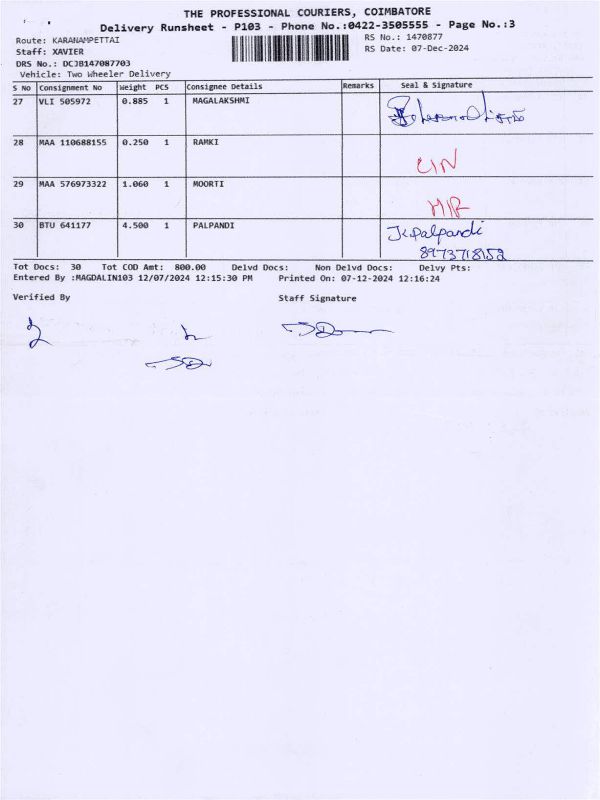 THE PROFESSIONAL COURIERS, COIMBATORE
Delivery Runsheet - P103 - Phone No.:0422-3505555 - Page No.:3
Route: KARANAMPETTAI
RS No.: 1470877
Staff: XAVIER
RS Date: 07-Dec-2024
DRS No.: DCJB147087703
Vehicle: Two Wheeler Delivery
S No Consignment No Weight PCS Consignee Details Remarks Seal & Signature
27 VLI 505972 0.885 1 MAGALAKSHMI
28 MAA 110688155 0.250 1 RAMKI
CIN
29 MAA 576973322 1.060 1 MOORTI
MIR
30 BTU 641177 4.500 1 PALPANDI J.Palpandi
8973718152
Tot Docs: 30 Tot COD Amt: 800.00 Delvd Docs: Non Delvd Docs: Delvy Pts:
Entered By :MAGDALIN103 12/07/2024 12:15:30 PM Printed On: 07-12-2024 12:16:24
Verified By Staff Signature